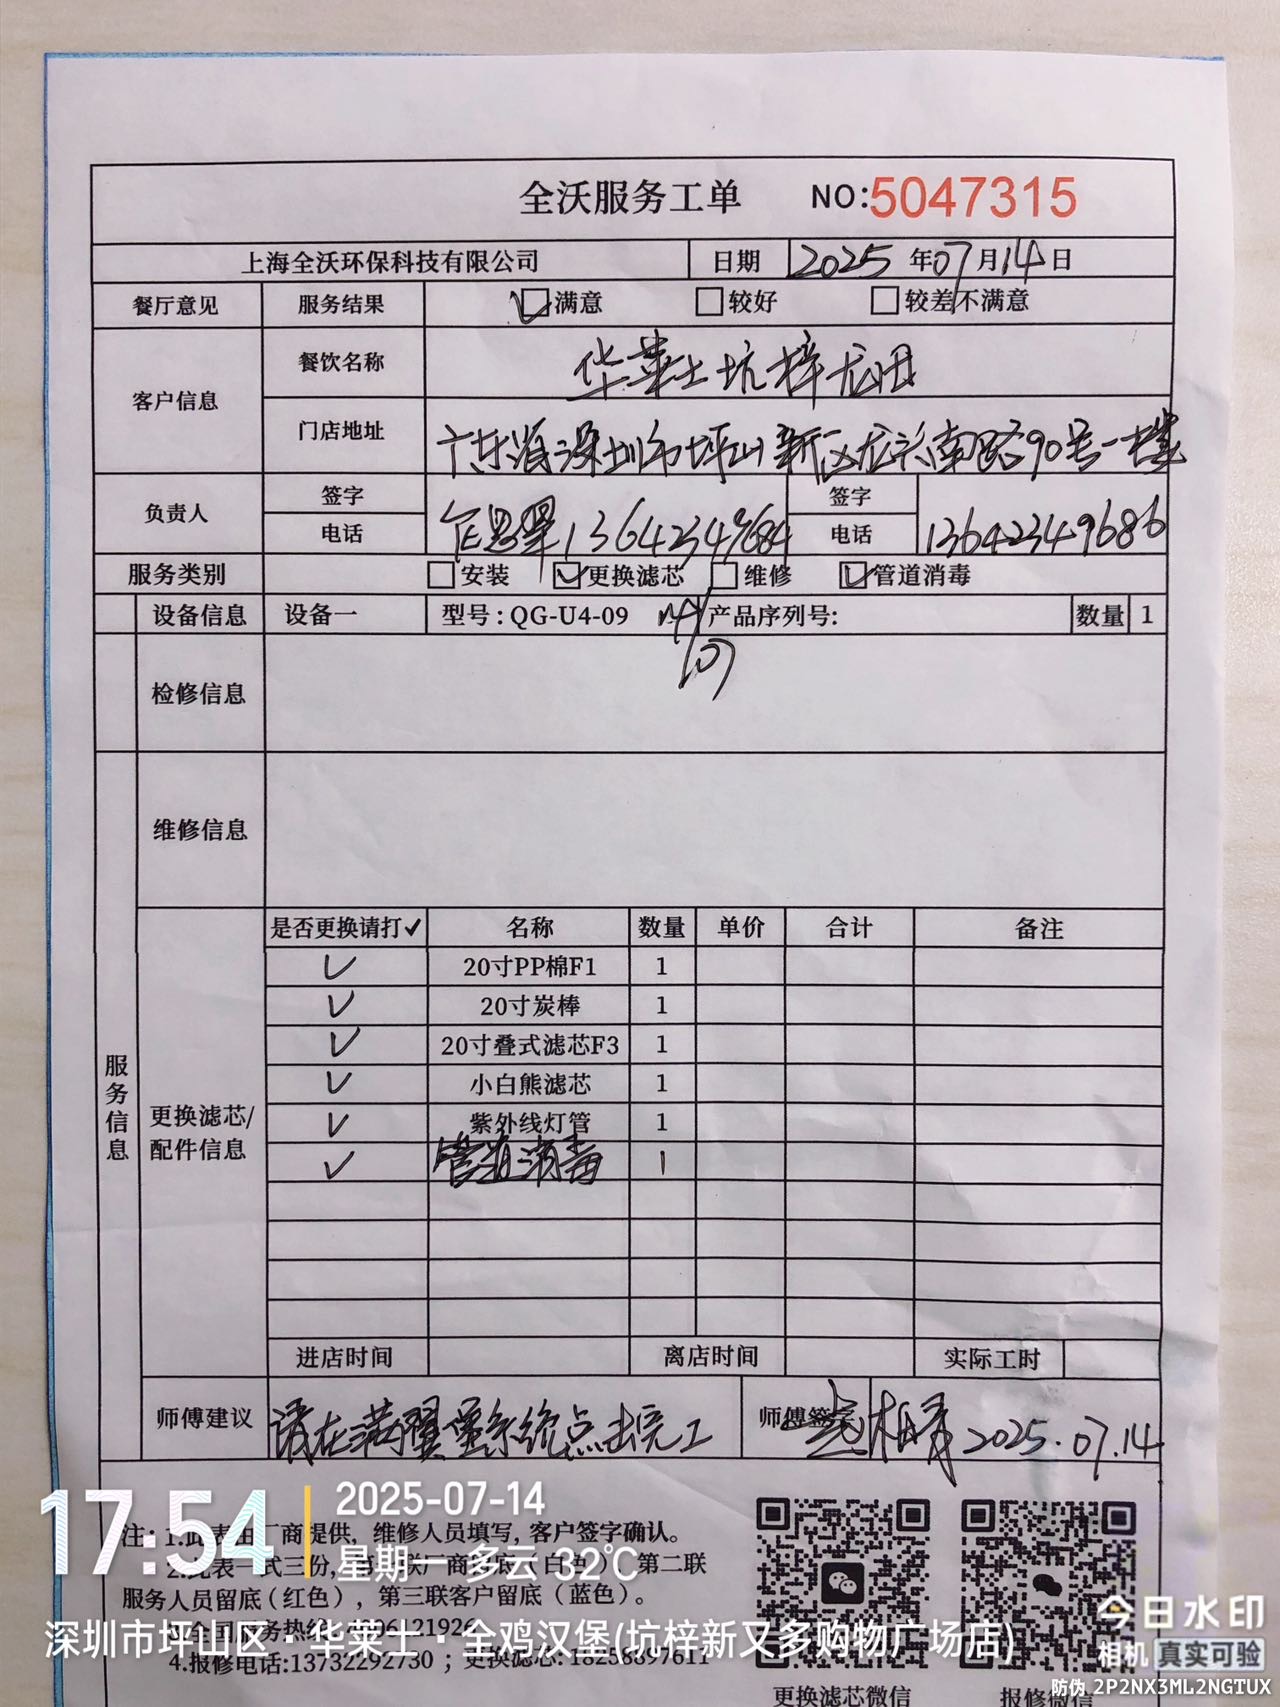 全沃服务工单 NO:5047315
上海全沃环保科技有限公司 日期 2025年07月14日
餐厅意见 服务结果 满意 较好 较差不满意
客户信息 餐饮名称 华莱士坑梓龙田
门店地址 广东省深圳市坪山新区龙兴南路90号一楼
负责人 签字 签字
电话 13642349684 电话 13642349686
服务类别 安装 更换滤芯 维修 管道消毒
设备信息 设备一 型号:QG-U4-09 产品序列号: 数量 1
检修信息
维修信息
服务信息
更换滤芯/配件信息
是否更换请打✓ 名称 数量 单价 合计 备注
✓ 20寸PP棉F1 1
✓ 20寸炭棒 1
✓ 20寸叠式滤芯F3 1
✓ 小白熊滤芯 1
✓ 紫外线灯管 1
✓ 管道消毒 1
进店时间 离店时间 实际工时
师傅建议 请在满翼重系统点击完工 师傅签字 2025.07.14
17:54
2025-07-14
星期一 多云 32℃
注:1.此表由厂商提供，维修人员填写，客户签字确认。
2.此表一式三份，第一联厂商留底（白色），第二联
服务人员留底(红色)，第三联客户留底（蓝色）。
深圳市坪山区·华莱士·全鸡汉堡(坑梓新又多购物广场店)
4.报修电话:13732292730；更换滤芯:18258897611
更换滤芯微信 报修微信
今日水印
相机 真实可验
防伪 2P2NX3ML2NGTUX